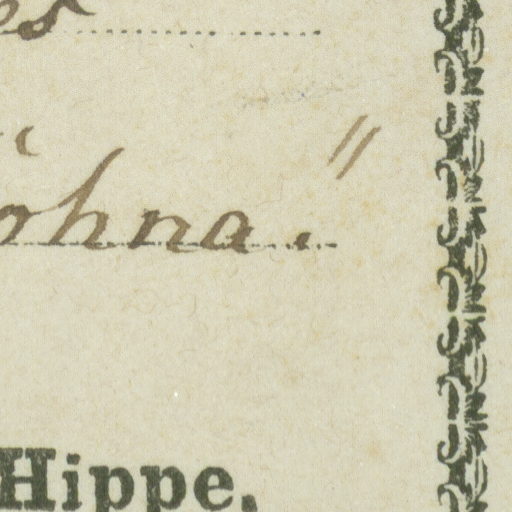 ohna."
Hippe,